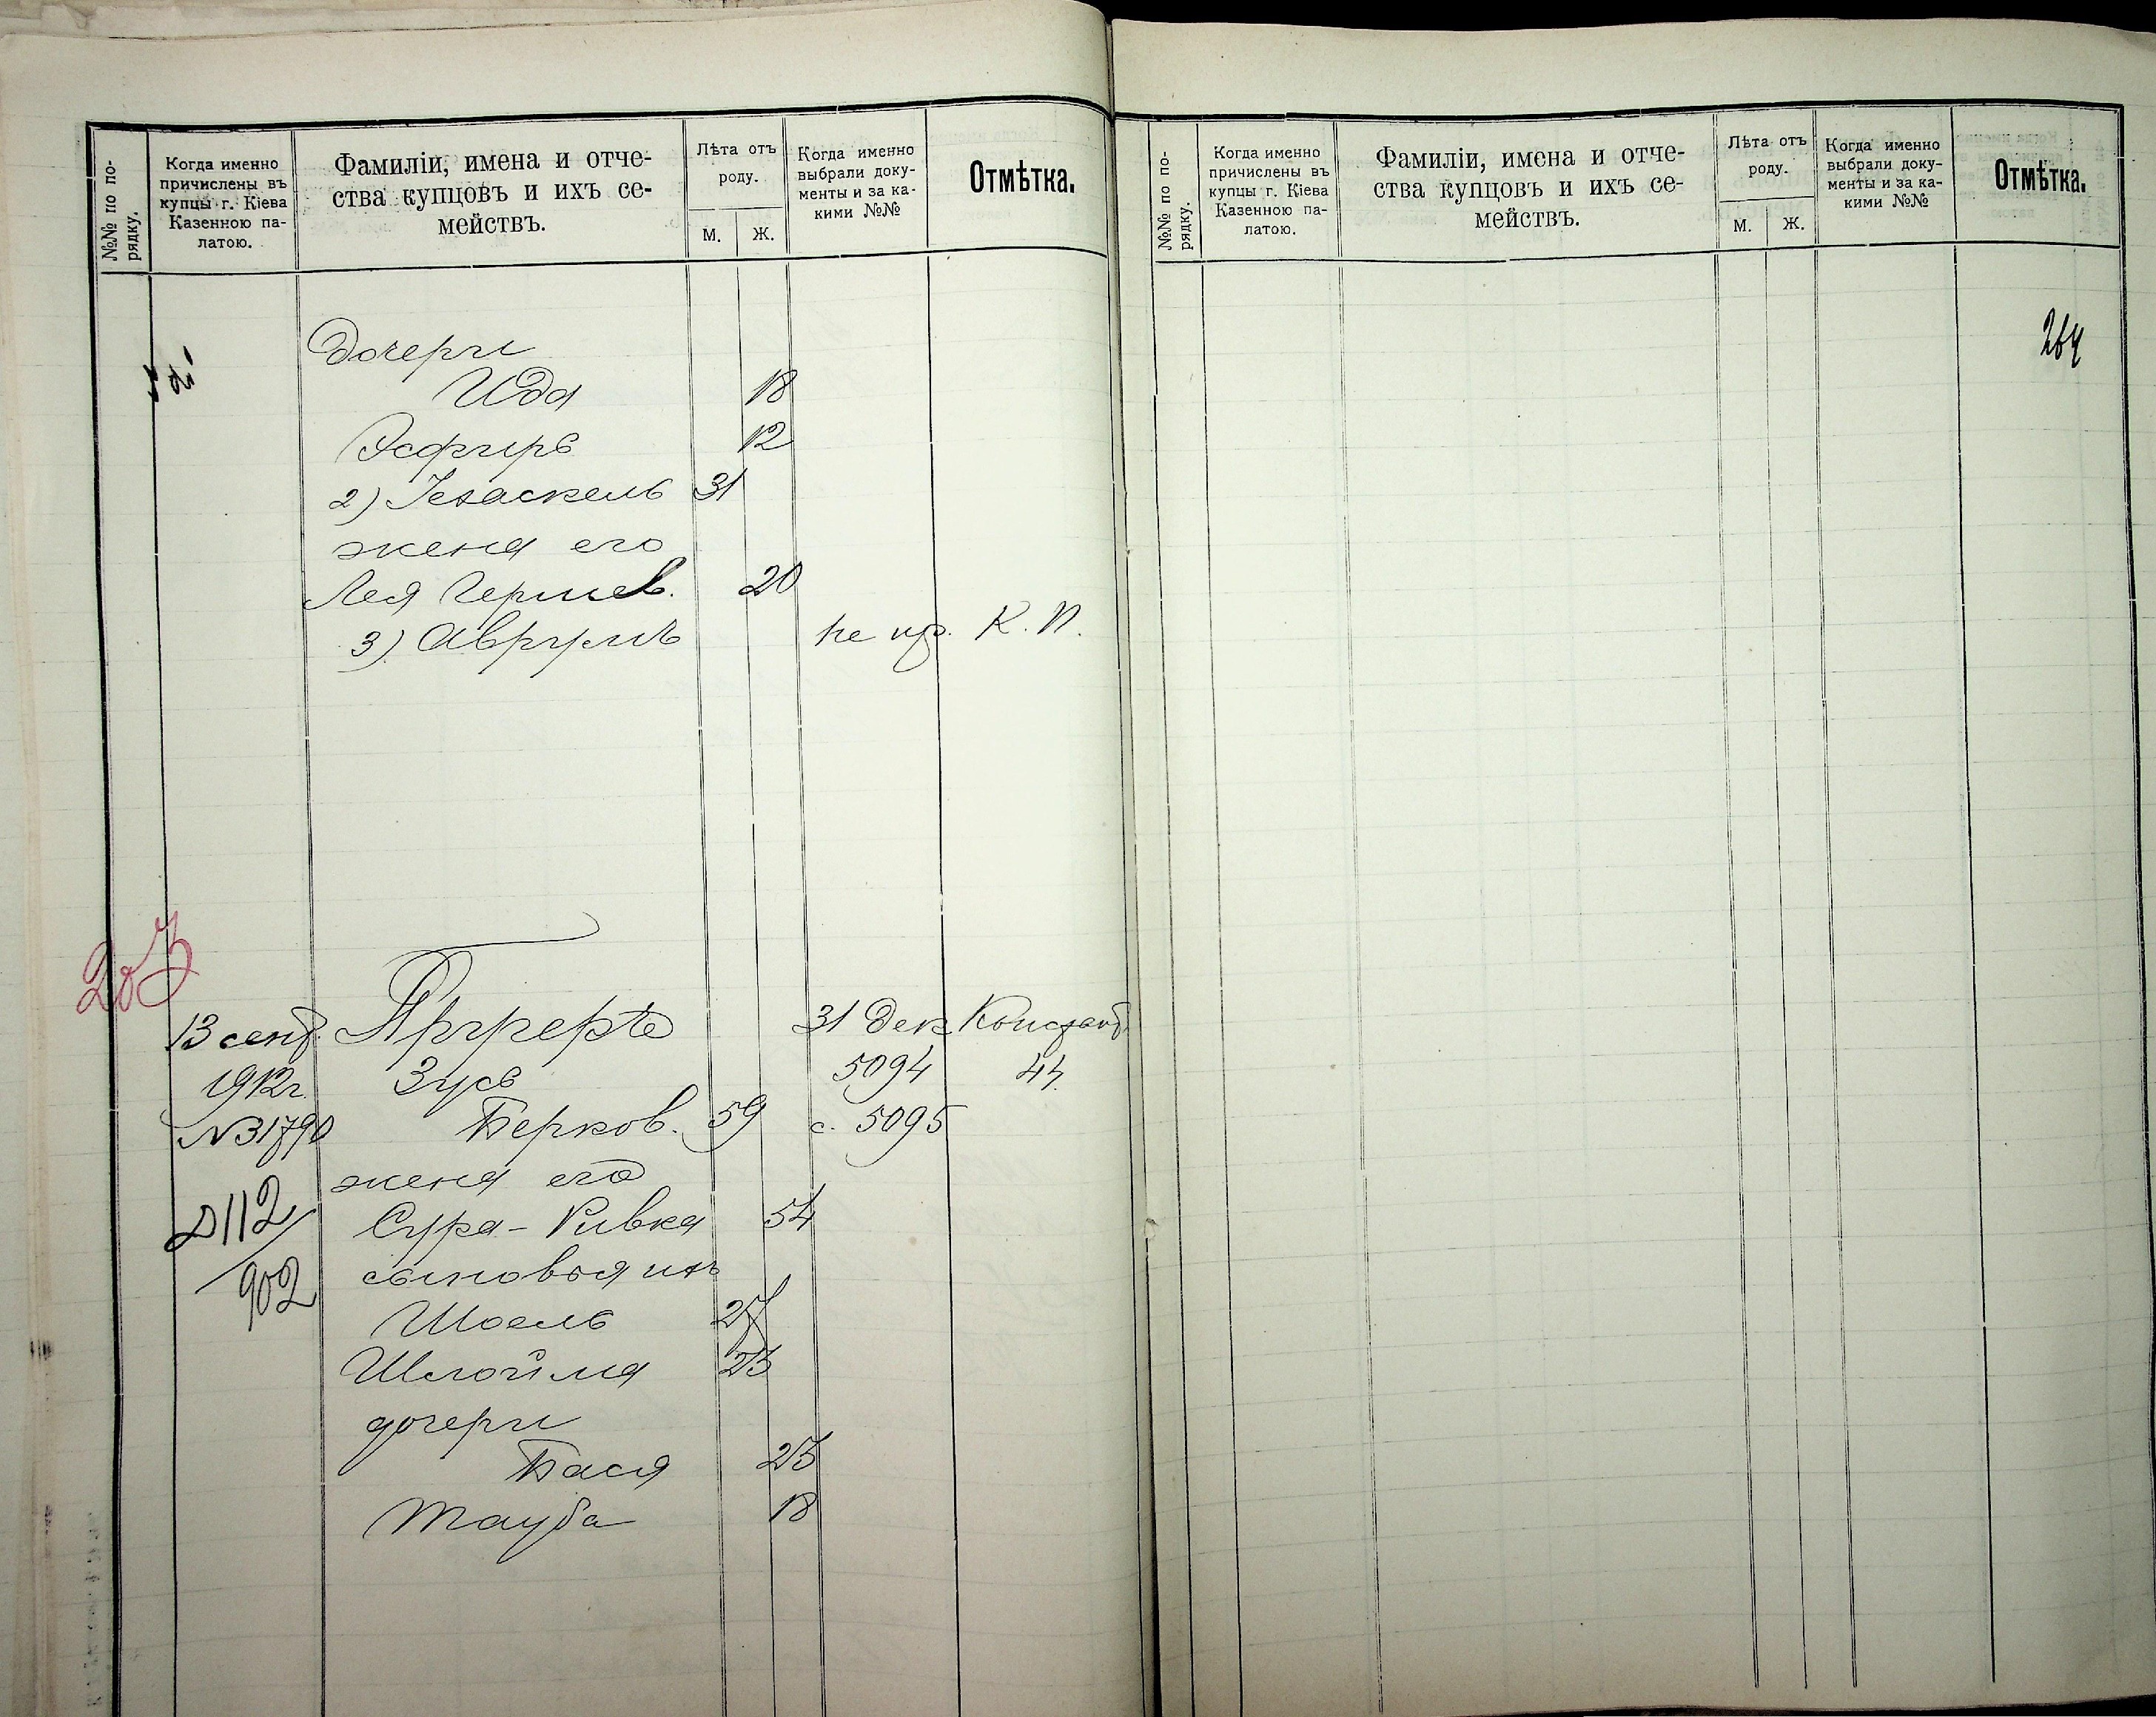 №№ по по-
рядку.
Когда именно
причислены въ
купцы г. Кіева
Казенною па-
латою.
Фамиліи, имена и отче-
ства купцовъ и ихъ се-
мействъ.
Лѣта отъ
роду.
М. Ж.
Когда именно
выбрали доку-
менты и за ка-
кими №№
Отмѣтка.
Дочери
Ида 18
Эсфирь 12
2) Іезаскель 31
жена его
Лея Гершев. 20
3) Аврумъ не пр. К. П.
203
13 сент. 31 Дек Констант.
1912 г. Зусь 5094 44.
N 31790 Берков. 59 с. 5095
жена его
2112 Сура-Ривка 54
902 сыновья ихъ
Шоель 27
Шлойма 23
дочери
Бася 25
Тауба 18
№№ по по-
рядку.
Когда именно
причислены въ
купцы г. Кіева
Казенною па-
латою.
Фамиліи, имена и отче-
ства купцовъ и ихъ се-
мействъ.
Лѣта отъ
роду.
М. Ж.
Когда именно
выбрали доку-
менты и за ка-
кими №№
Отмѣтка.
264